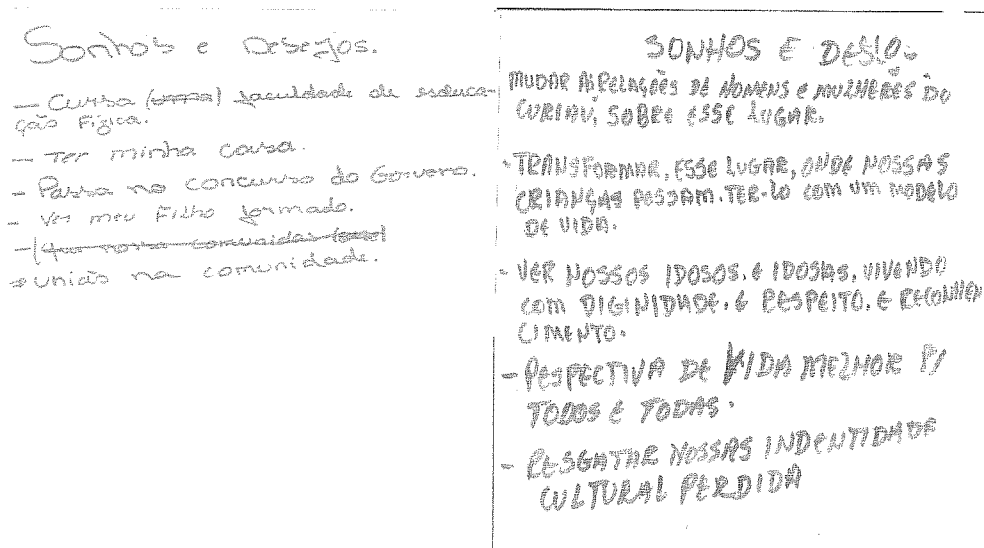 Sonhos e Desejos.
— Cursa () faculdade de educa-
ção Fizica.
— Ter minha cavsa.
— Passa no concurso do Governo.
— Ver meu Filho formado.
—
⇒ união na comunidade.
SONHOS E
MUDAR AS RELAÇÕES DE HOMENS E MULHERES DO
CURIAÚ, SOBRE ESSE LUGAR.
- TRANSFORMAR, ESSE LUGAR, ONDE NOSSAS
CRIANÇAS POSSAM. TER-LO COM UM MODELO
DE VIDA.
- VER NOSSOS IDOSOS. E IDOSAS, VIVENDO
COM DIGINIDADE. E RESPEITO. E RECONHEN
CIMENTO.
- PESPECTIVA DE VIDA MELHOR P/
TODOS E TODAS.
- RESGATAR NOSSAS INDENTIDADE
CULTURAL PERDIDA